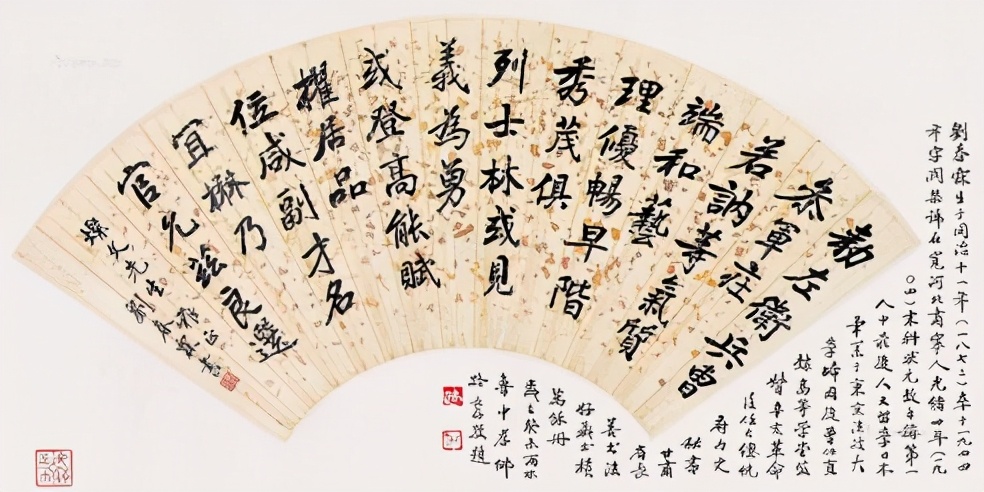 勅左衛兵曹
叅軍庄
若訥等氣質
端和藝
理優暢早階
秀茂俱
列士林或見
義為勇
或登高能賦
擢居品
位咸副才名
宜楙乃
官允茲良選
燦文先生雅正
劉春霖書
劉春霖生于同治十一年（一八七二）卒于一九四四
年字潤琴號石筼河北肅寧人光緒卅年（一九
〇四）末科狀元故有第一
人中最後人又留學日本
畢業于東京法政大
學歸國後曾任直
隸高等學堂監
督辛亥革命
後任大總統
府內史
秘書
甘肅
省長
善書法
好藏古
萬餘冊
歲在癸未雨水